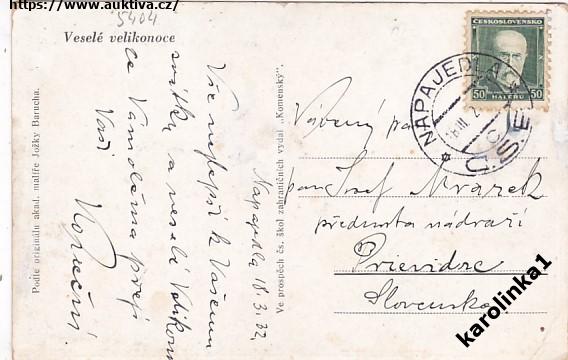 https://www.auktiva.cz/
5404
Veselé velikonoce
Vše nejlepší k Vašemu
svátku a veselé Velikonoce
Vám všema přejí
Vaši
Napajedla 18.3.32
Podle originálu akad. malíře Jožky Barucha.
Ve prospěch čs. škol zahraničních vydal „Komenský".
ČESKOSLOVENSKO
50 HALÉŘŮ 50
NAPAJEDLA
Vážený pan
pan Josef Mrázek
přednosta nádraží
Prievidze
Slovensko
karolinka1